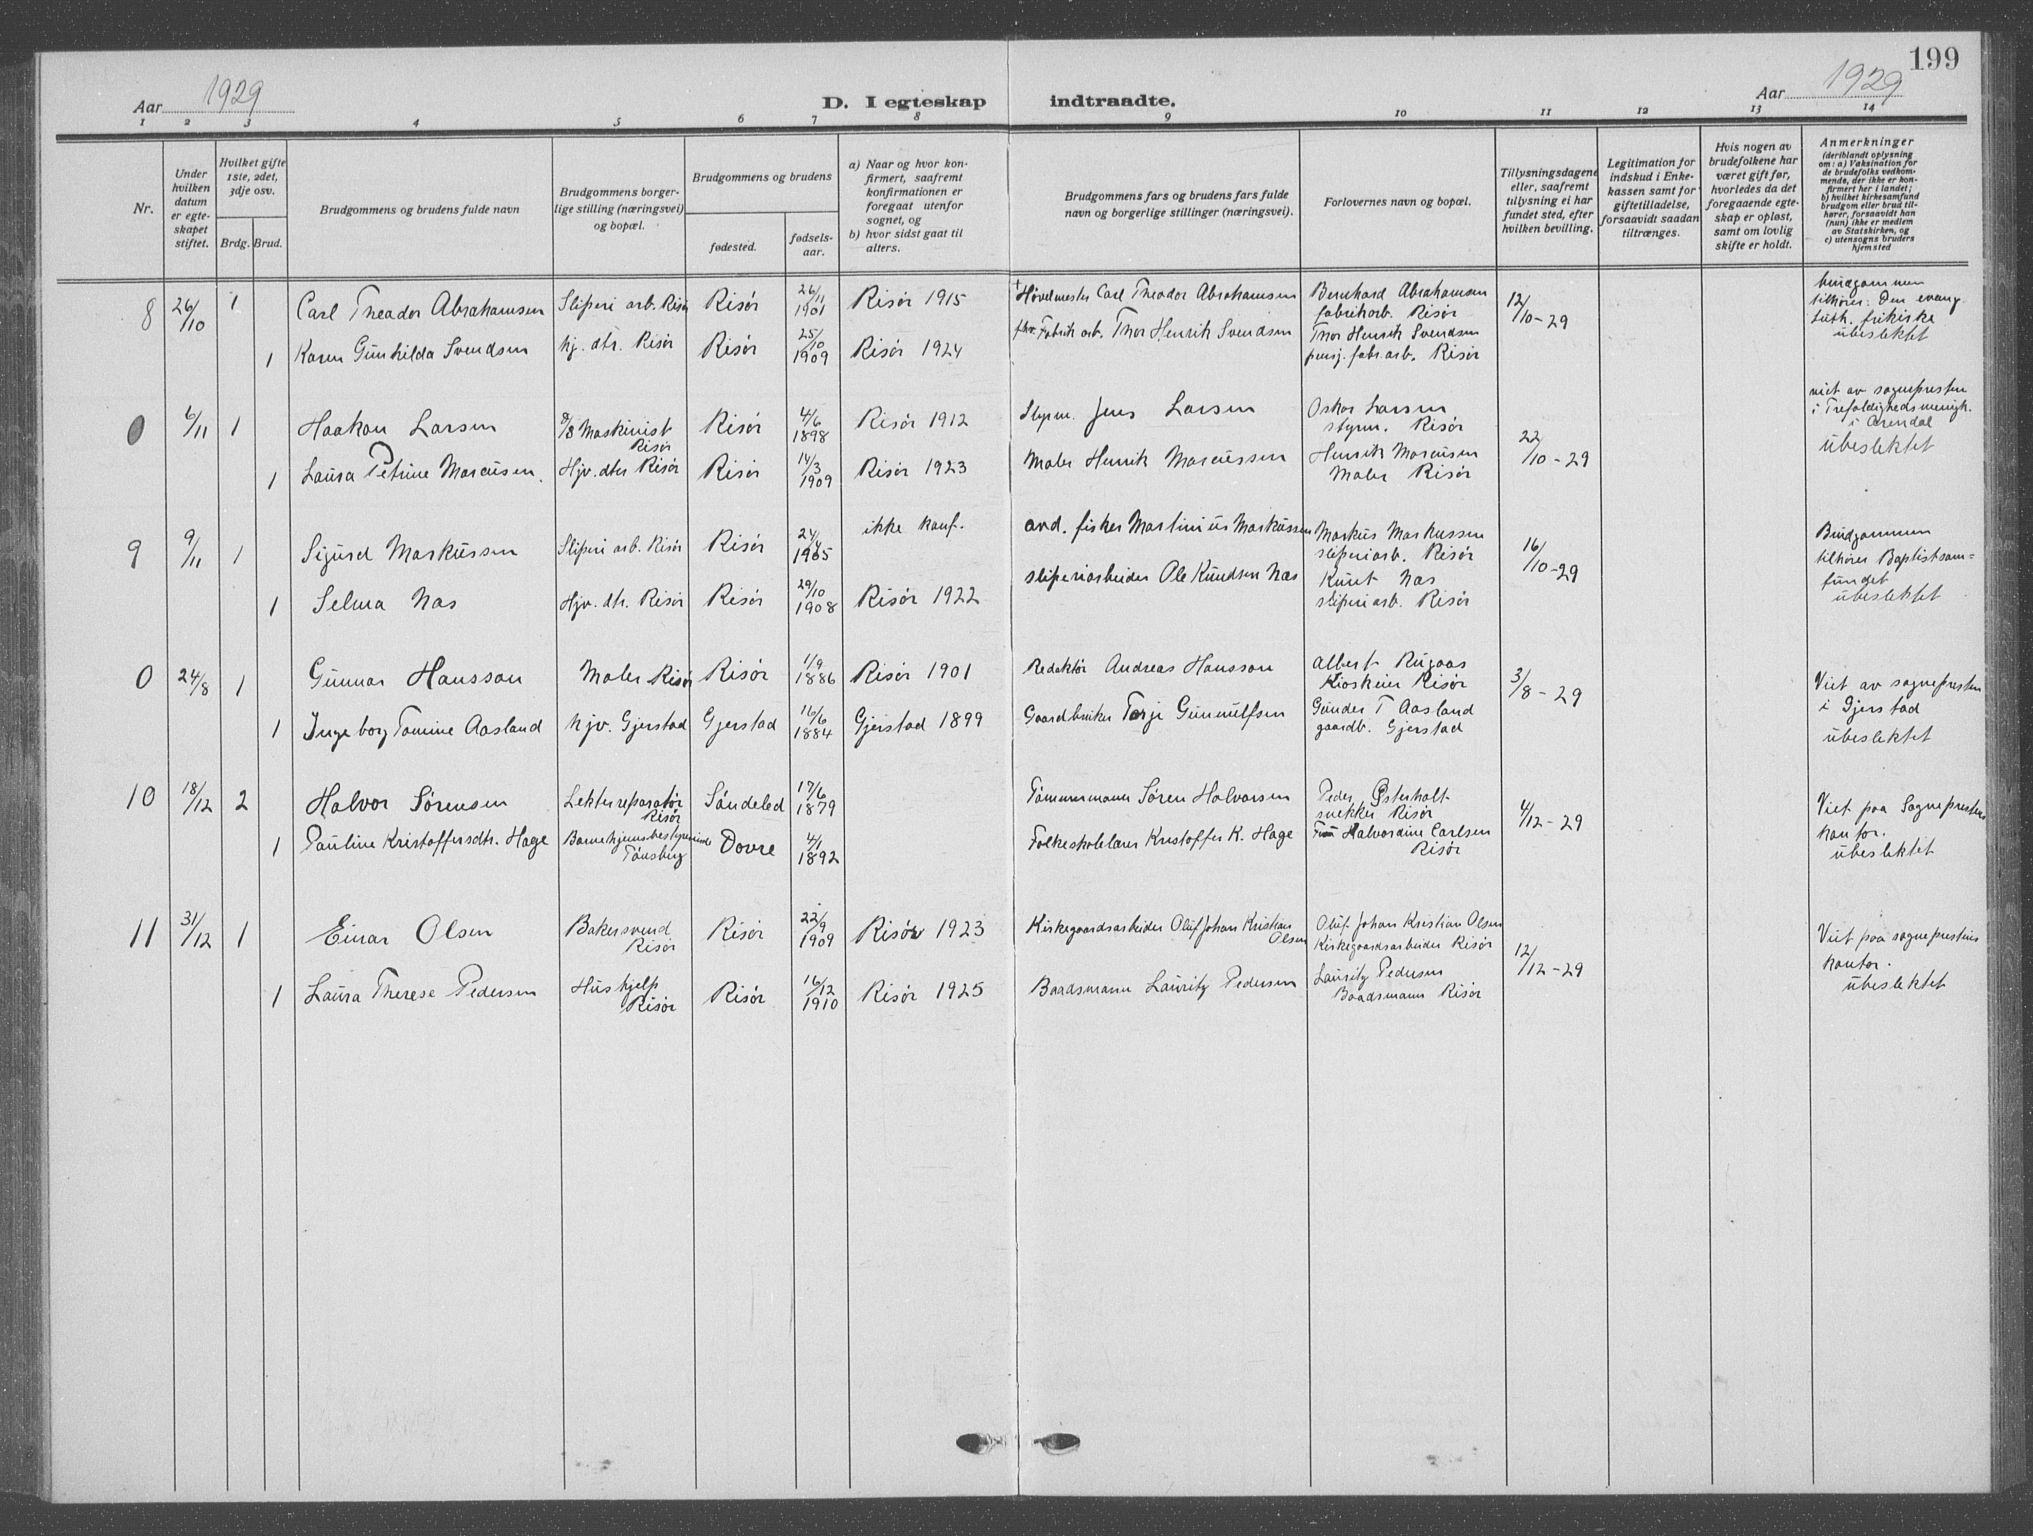 199
Aar 1929
D. I egteskap indtraadte.
Aar 1929
1 2 3 4 5 6 7 8 9 10 11 12 13 14
Nr.
Under hvilken datum er egteskapet stiftet.
Hvilket gifte 1ste, 2det, 3dje osv.
Brdg. Brud.
Brudgommens og brudens fulde navn
Brudgommens borgerlige stilling (næringsvei) og bopæl.
Brudgommens og brudens
fødested.
fødselsaar.
a) Naar og hvor konfirmert, saafremt konfirmationen er foregaat utenfor sognet, og
b) hvor sidst gaat til alters.
Brudgommens fars og brudens fars fulde navn og borgerlige stillinger (næringsvei).
Forlovernes navn og bopæl.
Tillysningsdagene eller, saafremt tillysning ei har fundet sted, efter hvilken bevilling.
Legitimation for indskud i Enkekassen samt for giftetilladelse, forsaavidt saadan tiltrænges.
Hvis nogen av brudefolkene har været gift før, hvorledes da det foregaaende egteskap er opløst, samt om lovlig skifte er holdt.
Anmerkninger
(deriblandt oplysning om: a) Vaksination for de brudefolks vedkommende, der ikke er konfirmert her i landet; b) hvilket kirkesamfund brudgom eller brud tilhører, forsaavidt han (hun) ikke er medlem av Statskirken, og c) utensogns bruders hjemsted
8 26/10 1 Carl Theador Abrahamsen Sliperi arb. Risør Risør 26/11 1901 Risør 1915 Høvelmester Carl Theador Abrahamsen Bernhard Abrahamsen fabrikarb. Risør 12/10-29 brudgommen tilhører Den evang. luth. frikirke ubeslektet
1 Karen Gunhilda Svendsen hj. dtr. Risør Risør 25/10 1909 Risør 1924 Fabrik arb. Thor Henrik Svendsen Thor Henrik Svendsen pensj. fabr.arb. Risør
0 6/11 1 Haakon Larsen Maskinist Risør Risør 4/6 1898 Risør 1912 Styrm. Jens Larsen Oskar Larsen styrm. Risør 22/10-29 viet av sognepresten i Trefoldighedsmenigh. i Arendal ubeslektet
1 Laura Petrine Marcussen. Hjv. dtr Risør Risør 14/3 1909 Risør 1923 Maler Henrik Marcussen Henrik Marcussen Maler Risør
9 9/11 1 Sigurd Markussen Sliperi arb. Risør Risør 24/4 1905 ikke konf. avd. fisker Martinius Markussen Markus Markussen sliperiarb. Risør 16/10-29 Brudgommen tilhører Baptistsamfundet ubeslektet
1 Selma Nas Hjv. dtr. Risør Risør 29/10 1908 Risør 1922 sliperiarbeider Ole Knudsen Nas Knut Nas sliperiarb. Risør
0 24/8 1 Gunnar Hansson Maler Risør Risør 1/9 1886 Risør 1901 Redaktør Andreas Hansson Albert Rugaas Kioskeier Risør 3/8-29 Viet av sognepresten i Gjerstad ubeslektet
1 Ingeborg Tomine Aasland hjv. Gjerstad Gjerstad 16/6 1884 Gjerstad 1899 Gaardbruker Torje Gunnulfsen Gunder T Aasland gaardb. Gjerstad
10 18/12 2 Halvor Sørensen Lektereparatør Risør Søndeled 17/6 1879 Tømmermann Søren Halvorsen Peder Østerholt snekker Risør 4/12-29 Viet paa Sogneprestens kontor. ubeslektet
1 Pauline Kristoffersdtr. Hage Barnehjemsbestyrerinde Tønsberg Dovre 4/1 1892 Folkeskolelærer Kristoffer K. Hage Fru Halvordine Carlsen Risør
11 31/12 1 Einar Olsen Bakersvend Risør Risør 22/9 1909 Risør 1923 Kirkegaardsarbeider Oluf Johan Kristian Olsen Oluf Johan Kristian Olsen Kirkegaardsarbeider Risør 12/12-29 Viet paa sogneprestens kontor. ubeslektet
1 Laura Therese Pedersen Hushjelp Risør Risør 16/12 1910 Risør 1925 Baadsmann Lauritz Pedersen Lauritz Pedersen Baadsmann Risør